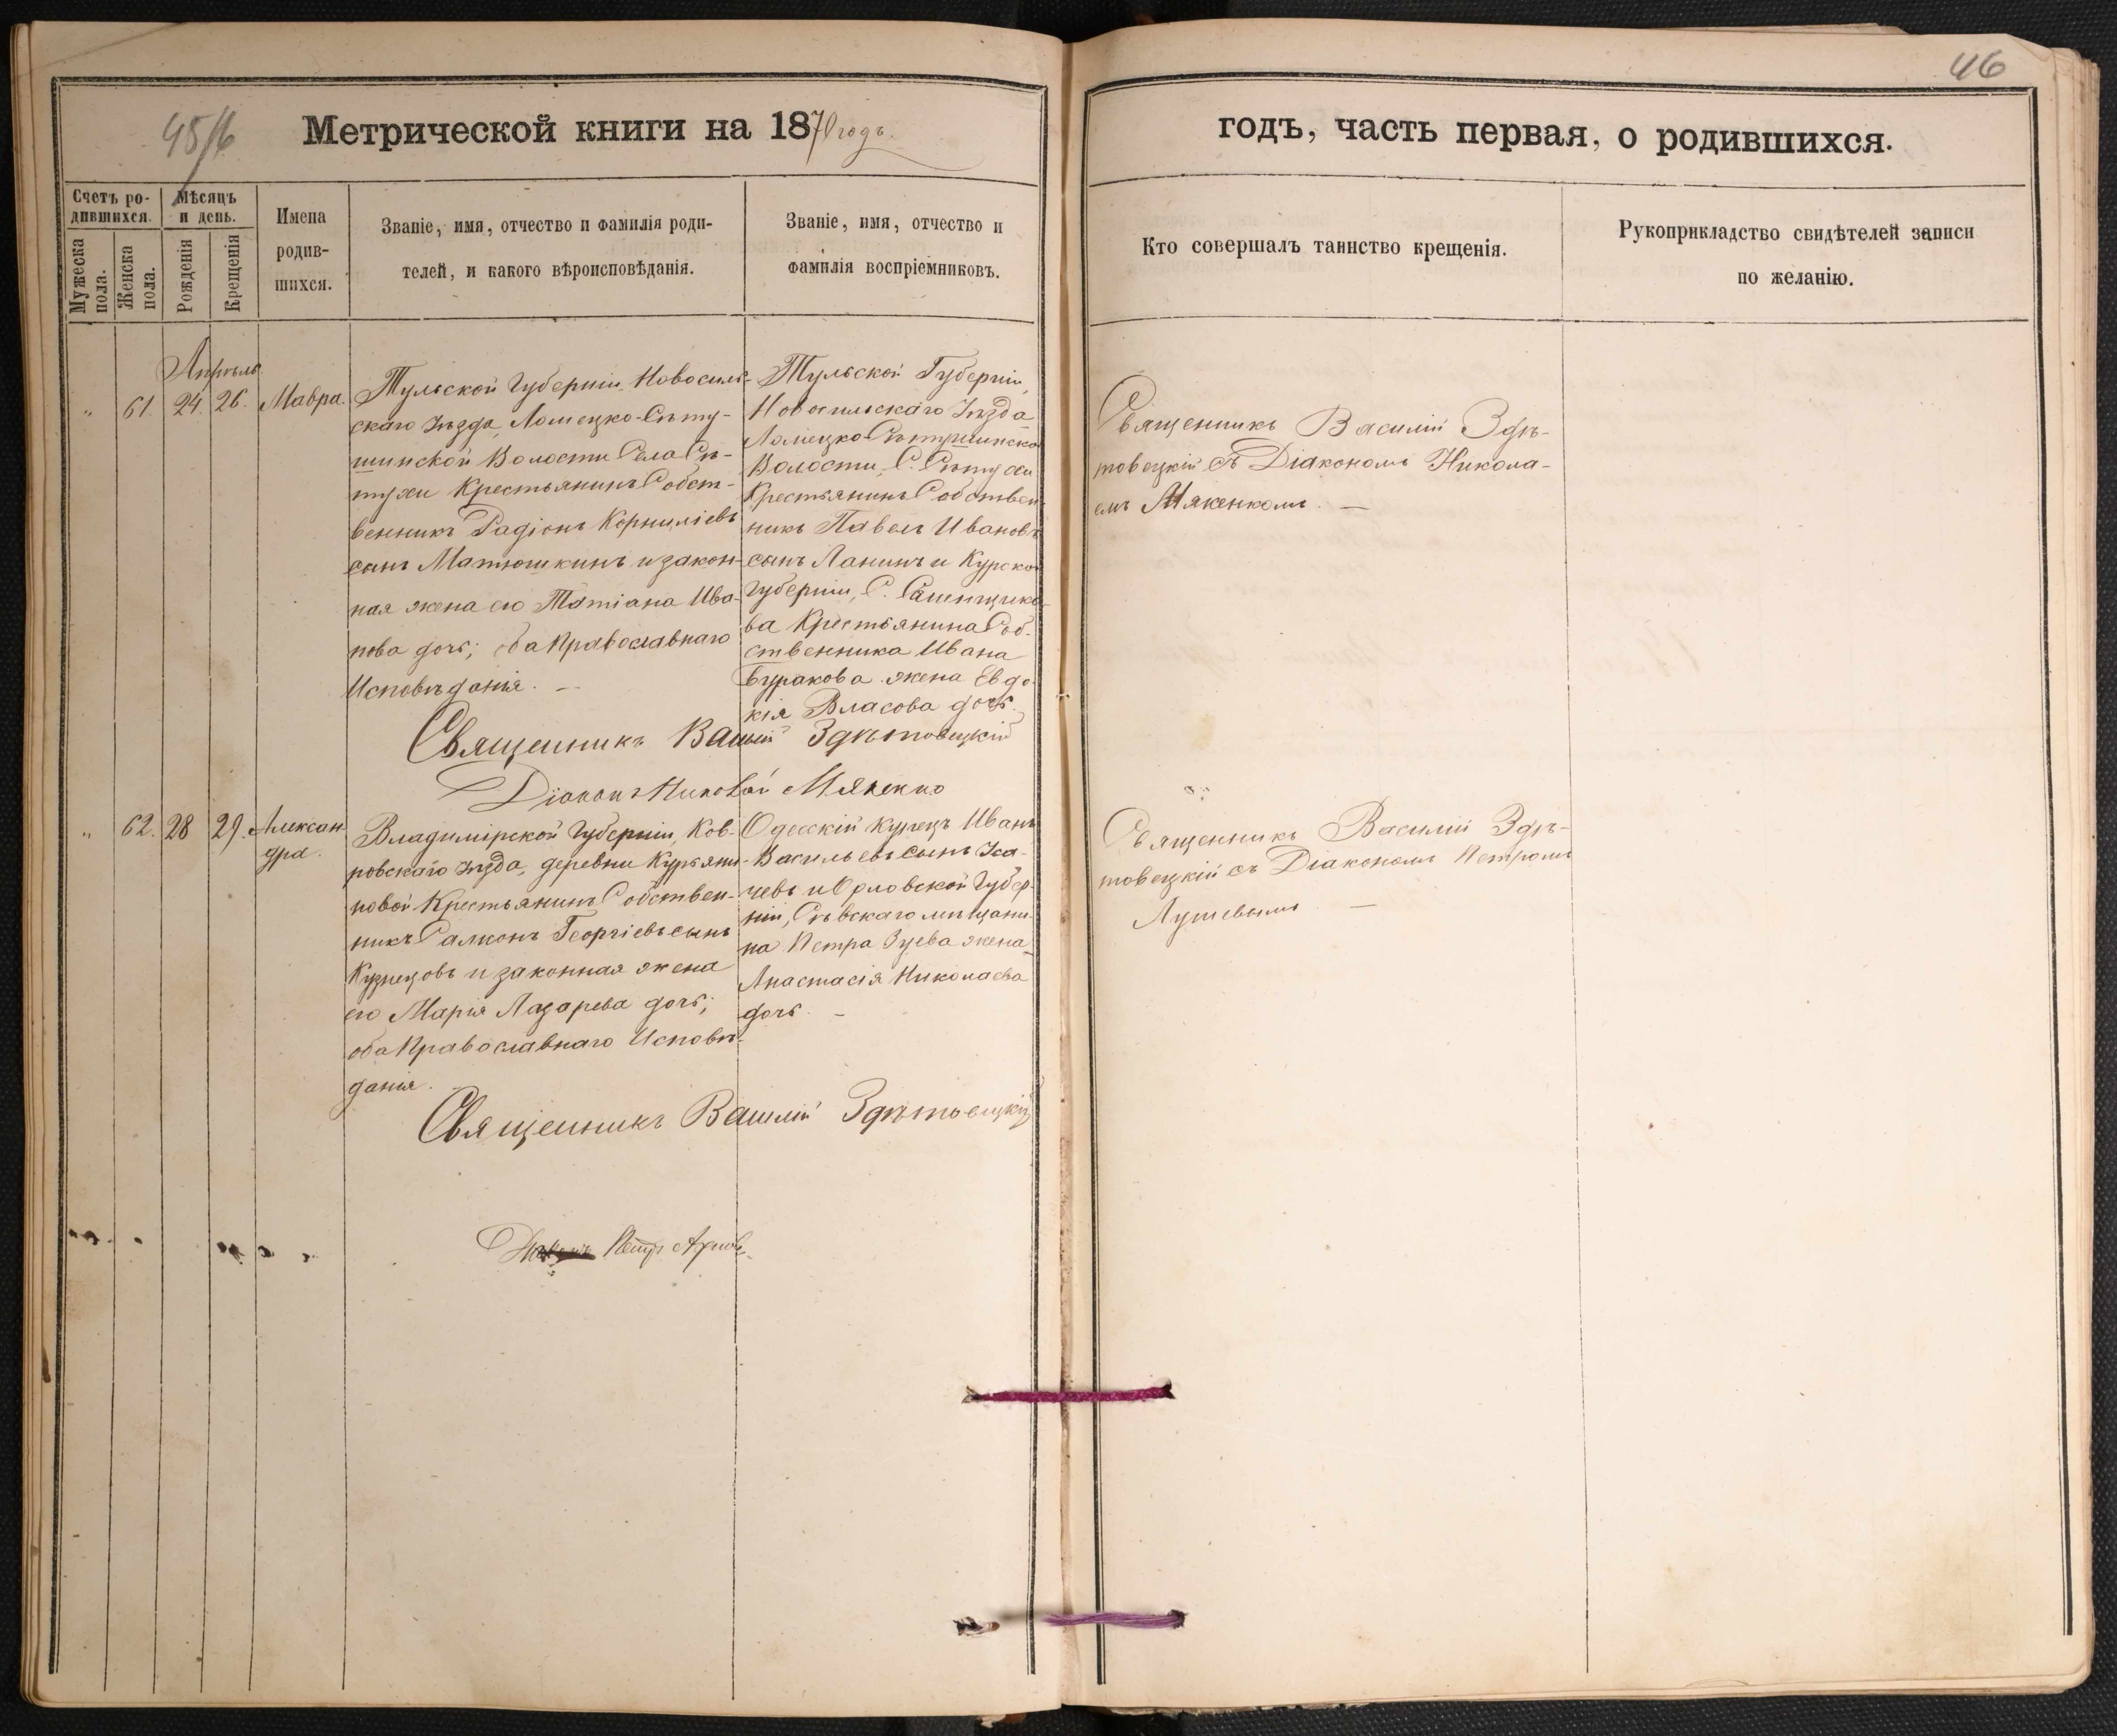 45/6
46
Метрической книги на 1870 годъ.
годъ, часть первая, о родившихся.
Счетъ ро-
дившихся.
Мужеска
пола.
Женска
пола.
Мѣсяцъ
и день.
Рожденія
Крещенія
Имена
родив-
шихся.
Званіе, имя, отчество и фамилія роди-
телей, и какого вѣроисповѣданія.
Званіе, имя, отчество и
фамилія воспріемниковъ.
Кто совершалъ таинство крещенія.
Рукоприкладство свидѣтелей записи
по желанію.
Апрѣль
" 61. 24. 26. Мавра.
Тульской Губерніи Новосиль-
скаго уѣзда, Ломецко-Сѣту-
шинской Волости Села Сѣ-
тухи Крестьянинъ Собст-
венникъ Радіонъ Корниліевъ
сынъ Матюшкинъ и закон-
ная жена его Татіана Ива-
нова дочь; оба Православнаго
Исповѣданія. —
Тульской Губерніи,
Новосильскаго Уѣзда
Ломецко-Сѣтушинской
Волости, С. Сѣтухи
Крестьянинъ Собствен
никъ Павелъ Ивановъ
сынъ Ланинъ и Курской
Губерніи, С.
ва Крестьянина Соб-
ственника Ивана
Буракова жена Евдо-
кія Власова дочь.
Священникъ Василій Здѣтовецкій
Діаконъ Николай Мякенко
Священникъ Василій Здѣ-
товецкій съ Діакономъ Никола-
емъ Мякенкомъ. —
" 62. 28 29. Алексан
дра.
Владимірской Губерніи, Ков-
ровскаго уѣзда, деревни Курьяни-
новой Крестьянинъ Собствен-
никъ Самсонъ Георгіевъ сынъ
Кузнецовъ и законная жена
его Марія Лазарева дочь;
оба Православнаго Исповѣ-
данія.
Одесскій купецъ Иванъ
Васильевъ сынъ Иса-
чевъ и Орловской Губер-
ніи, Сѣвскаго мѣщани-
на Петра Зуева жена
Анастасія Николаева
дочь. —
Священникъ Василій Здѣтовецкій
Діаконъ Петръ
Священникъ Василій Здѣ-
товецкій съ Діакономъ Петромъ
—